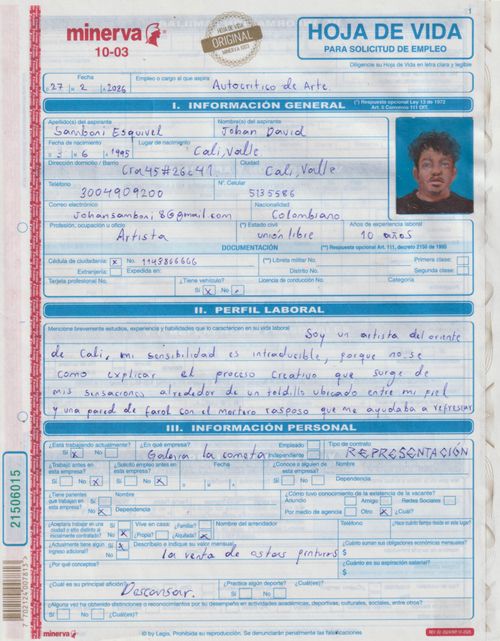 1
minerva
10-03
HOJA DE VIDA
ORIGINAL
MINERVA 1003
HOJA DE VIDA
PARA SOLICITUD DE EMPLEO
Diligencie su Hoja de Vida en letra clara y legible
Fecha
27 2 2026
Empleo o cargo al que aspira
Autocritico de Arte.
I. INFORMACIÓN GENERAL
(*) Respuesta opcional Ley 13 de 1972
Apellido(s) del aspirante
Nombre(s) del aspirante
Samboni Esquivel
Johan David
Fecha de nacimiento
Lugar de nacimiento
3 6 1995
Cali, Valle
Dirección domicilio / Barrio
Ciudad
Cra45#26c41
Cali, Valle
Teléfono
N°. Celular
3004909200
5135586
Correo electrónico
Nacionalidad
johansamboni86@gmail.com
Colombiano
Profesión, ocupación u oficio
(*) Estado civil
Años de experiencia laboral
Artista
unión libre
10 años
DOCUMENTACIÓN
(**) Respuesta opcional Art. 111, decreto 2150 de 1995
Cédula de ciudadanía: x No. 1143866666
(**) Libreta militar No.
Primera clase:
Extranjería:
Expedida en:
Distrito No.
Segunda clase:
Tarjeta profesional No.
¿Tiene vehículo?
Licencia de conducción No.
Categoría
Sí x No
II. PERFIL LABORAL
Mencione brevemente estudios, experiencia y habilidades que lo caractericen en su vida laboral
Soy un artista del oriente
de Cali, mi sensibilidad es intraducible, porque no se
como explicar el proceso creativo que surge de
mis sensaciones alrededor de un toldillo ubicado entre mi piel
y una pared de farol con el mortero rasposo que me ayudaba a refrescar
III. INFORMACIÓN PERSONAL
¿Está trabajando actualmente?
¿En qué empresa?
Empleado
Tipo de contrato
Sí x No
Galeria la cometa
Independiente
REPRESENTACIÓN
¿Trabajó antes en esta empresa?
¿Solicitó empleo antes en esta empresa?
Fecha
¿Conoce a alguien de esta empresa?
Nombre
Sí No x
Sí No x
Sí No x
Dependencia
¿Tiene parientes que trabajen en esta empresa?
Nombre
¿Cómo tuvo conocimiento de la existencia de la vacante?
Sí
Anuncio
Amigo
Redes Sociales
No x
Dependencia
Por medio de agencia
Otro x
¿Cuál?
¿Aceptaría trabajar en una ciudad o sitio distinto al inicialmente contratado?
Sí
No x
Vive en casa:
¿Familiar?
¿Propia?
¿Alquilada? x
Nombre del arrendador
Teléfono
¿Hace cuánto tiempo reside en este lugar?
¿Actualmente tiene algún ingreso adicional?
Sí x
No
Descríbalo e indique su valor mensual
la venta de estas pinturas
¿Cuánto suman sus obligaciones económicas al mes?
$
¿Por qué conceptos?
¿Cuál es su aspiración salarial?
$
¿Cuál es su principal afición?
¿Practica algún deporte?
¿Cuál(es)?
Descansar.
Sí No
¿Alguna vez ha obtenido distinciones o reconocimientos por su desempeño en actividades académicas, deportivas, culturales, sociales, entre otros?
Sí No
¿Cuál(es)?
minerva
© by Legis, Prohibida su reproducción. Se denunciarán penalmente las falsificaciones.
21506015
7 702124 007813